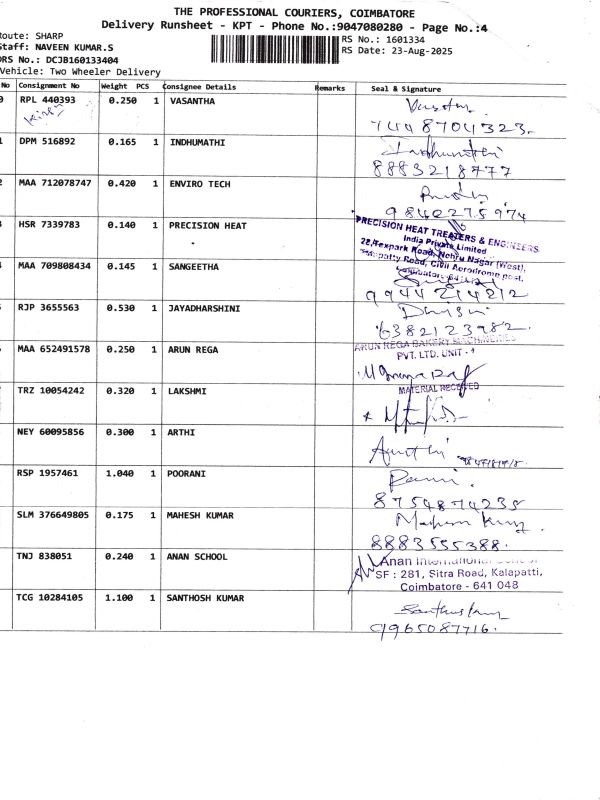 THE PROFESSIONAL COURIERS, COIMBATORE
Delivery Runsheet - KPT - Phone No.:9047080280 - Page No.:4
Route: SHARP
RS No.: 1601334
Staff: NAVEEN KUMAR.S
RS Date: 23-Aug-2025
DRS No.: DCJB160133404
Vehicle: Two Wheeler Delivery
No Consignment No Weight PCS Consignee Details Remarks Seal & Signature
0 RPL 440393 0.250 1 VASANTHA
7448704323
1 DPM 516892 0.165 1 INDHUMATHI Indhumathi
8883218777
2 MAA 712078747 0.420 1 ENVIRO TECH
9840275974
HSR 7339783 0.140 1 PRECISION HEAT PRECISION HEAT TREATERS & ENGINEERS
India Private Limited
22,Texpark Road, Nehru Nagar (West),
Civil Aerodrome post,
4 MAA 709808434 0.145 1 SANGEETHA
9944214212
RJP 3655563 0.530 1 JAYADHARSHINI
6382123982
MAA 652491578 0.250 1 ARUN REGA ARUN REGA BAKERY MACHINERIES
PVT. LTD. UNIT -
MATERIAL RECEIVED
TRZ 10054242 0.320 1 LAKSHMI
NEY 60095856 0.300 1 ARTHI
RSP 1957461 1.040 1 POORANI
8754874235
SLM 376649805 0.175 1 MAHESH KUMAR
8883555388.
TNJ 838051 0.240 1 ANAN SCHOOL Anan International School
SF : 281, Sitra Road, Kalapatti,
Coimbatore - 641 048
TCG 10284105 1.100 1 SANTHOSH KUMAR
9965087716.